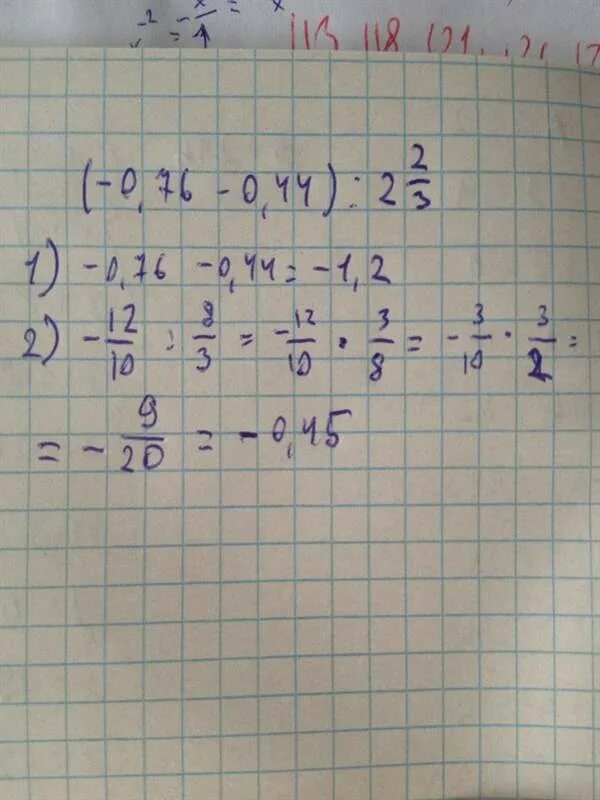 113 118 121
(-0,76 - 0,44) : 2 2/3
1) -0,76 -0,44 = -1,2
2) -12/10 : 8/3 = -12/10 · 3/8 = -3/10 · 3/2 =
= - 9/20 = - 0,45